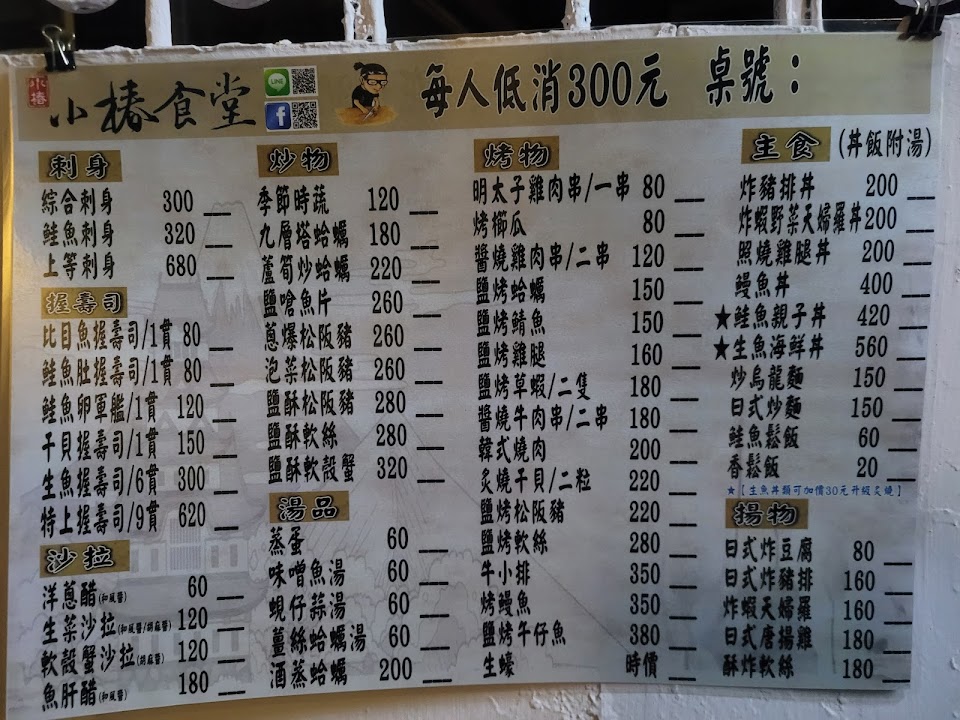 小椿
小椿食堂
LINE
f
每人低消300元 桌號：
刺身
綜合刺身 300
鮭魚刺身 320
上等刺身 680
握壽司
比目魚握壽司/1貫 80
鮭魚肚握壽司/1貫 80
鮭魚卵軍艦/1貫 120
干貝握壽司/1貫 150
生魚握壽司/6貫 300
特上握壽司/9貫 620
沙拉
洋蔥醋(和風醬) 60
生菜沙拉(和風醬/胡麻醬) 120
軟殼蟹沙拉(胡麻醬) 120
魚肝醋(和風醬) 180
炒物
季節時蔬 120
九層塔蛤蠣 180
蘆筍炒蛤蠣 220
鹽嗆魚片 260
蔥爆松阪豬 260
泡菜松阪豬 260
鹽酥松阪豬 280
鹽酥軟絲 280
鹽酥軟殼蟹 320
湯品
蒸蛋 60
味噌魚湯 60
蜆仔蒜湯 60
薑絲蛤蠣湯 60
酒蒸蛤蠣 200
烤物
明太子雞肉串/一串 80
烤櫛瓜 80
醬燒雞肉串/二串 120
鹽烤蛤蠣 150
鹽烤鯖魚 150
鹽烤雞腿 160
鹽烤草蝦/二隻 180
醬燒牛肉串/二串 180
韓式燒肉 200
炙燒干貝/二粒 220
鹽烤松阪豬 220
鹽烤軟絲 280
牛小排 350
烤鰻魚 350
鹽烤午仔魚 380
生蠔 時價
主食 (丼飯附湯)
炸豬排丼 200
炸蝦野菜天婦羅丼 200
照燒雞腿丼 200
鰻魚丼 400
★鮭魚親子丼 420
★生魚海鮮丼 560
炒烏龍麵 150
日式炒麵 150
鮭魚鬆飯 60
香鬆飯 20
★【生魚丼類可加價30元升級炙燒】
揚物
日式炸豆腐 80
日式炸豬排 160
炸蝦天婦羅 160
日式唐揚雞 180
酥炸軟絲 180